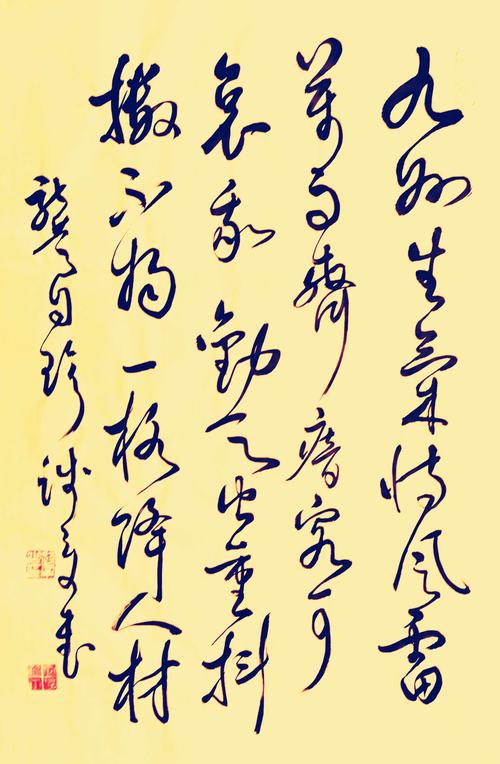 九州生氣恃風雷
萬馬齊瘖究可
哀我勸天公重抖
擻不拘一格降人材
龔自珍詩